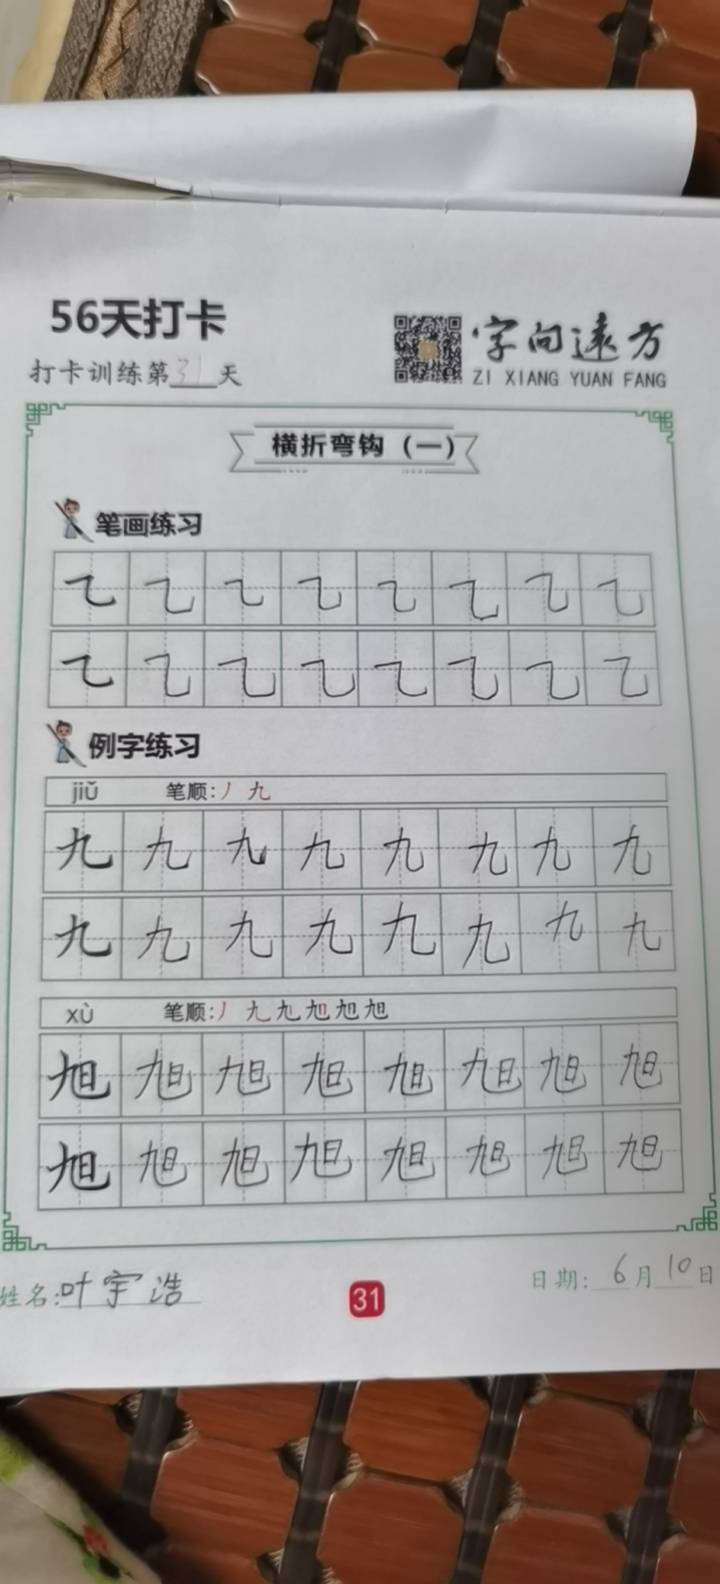 56天打卡
字向远方
打卡训练第31天
ZI XIANG YUAN FANG
横折弯钩（一）
笔画练习
乙乙乙乙乙乙乙乙
乙乙乙乙乙乙乙乙
例字练习
jiǔ 笔顺:丿九
九九九九九九九九
九九九九九九九九
xù 笔顺:丿九九旭旭旭
旭旭旭旭旭旭旭旭
旭旭旭旭旭旭旭旭
姓名:叶宇浩
31
日期:6月10日